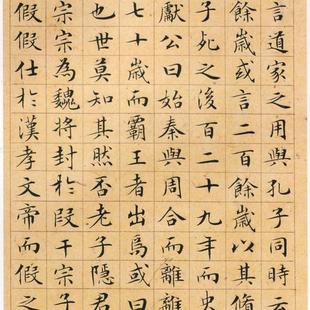 言道家之用與孔子同時云
餘歲或言二百餘歲以其脩
子死之後百二十九年而史
獻公曰始秦與周合而離離
七十歲而霸王者出焉或曰
也世莫知其然否老子隱君
宗宗為魏將封於段干宗子
假假仕於漢孝文帝而假之